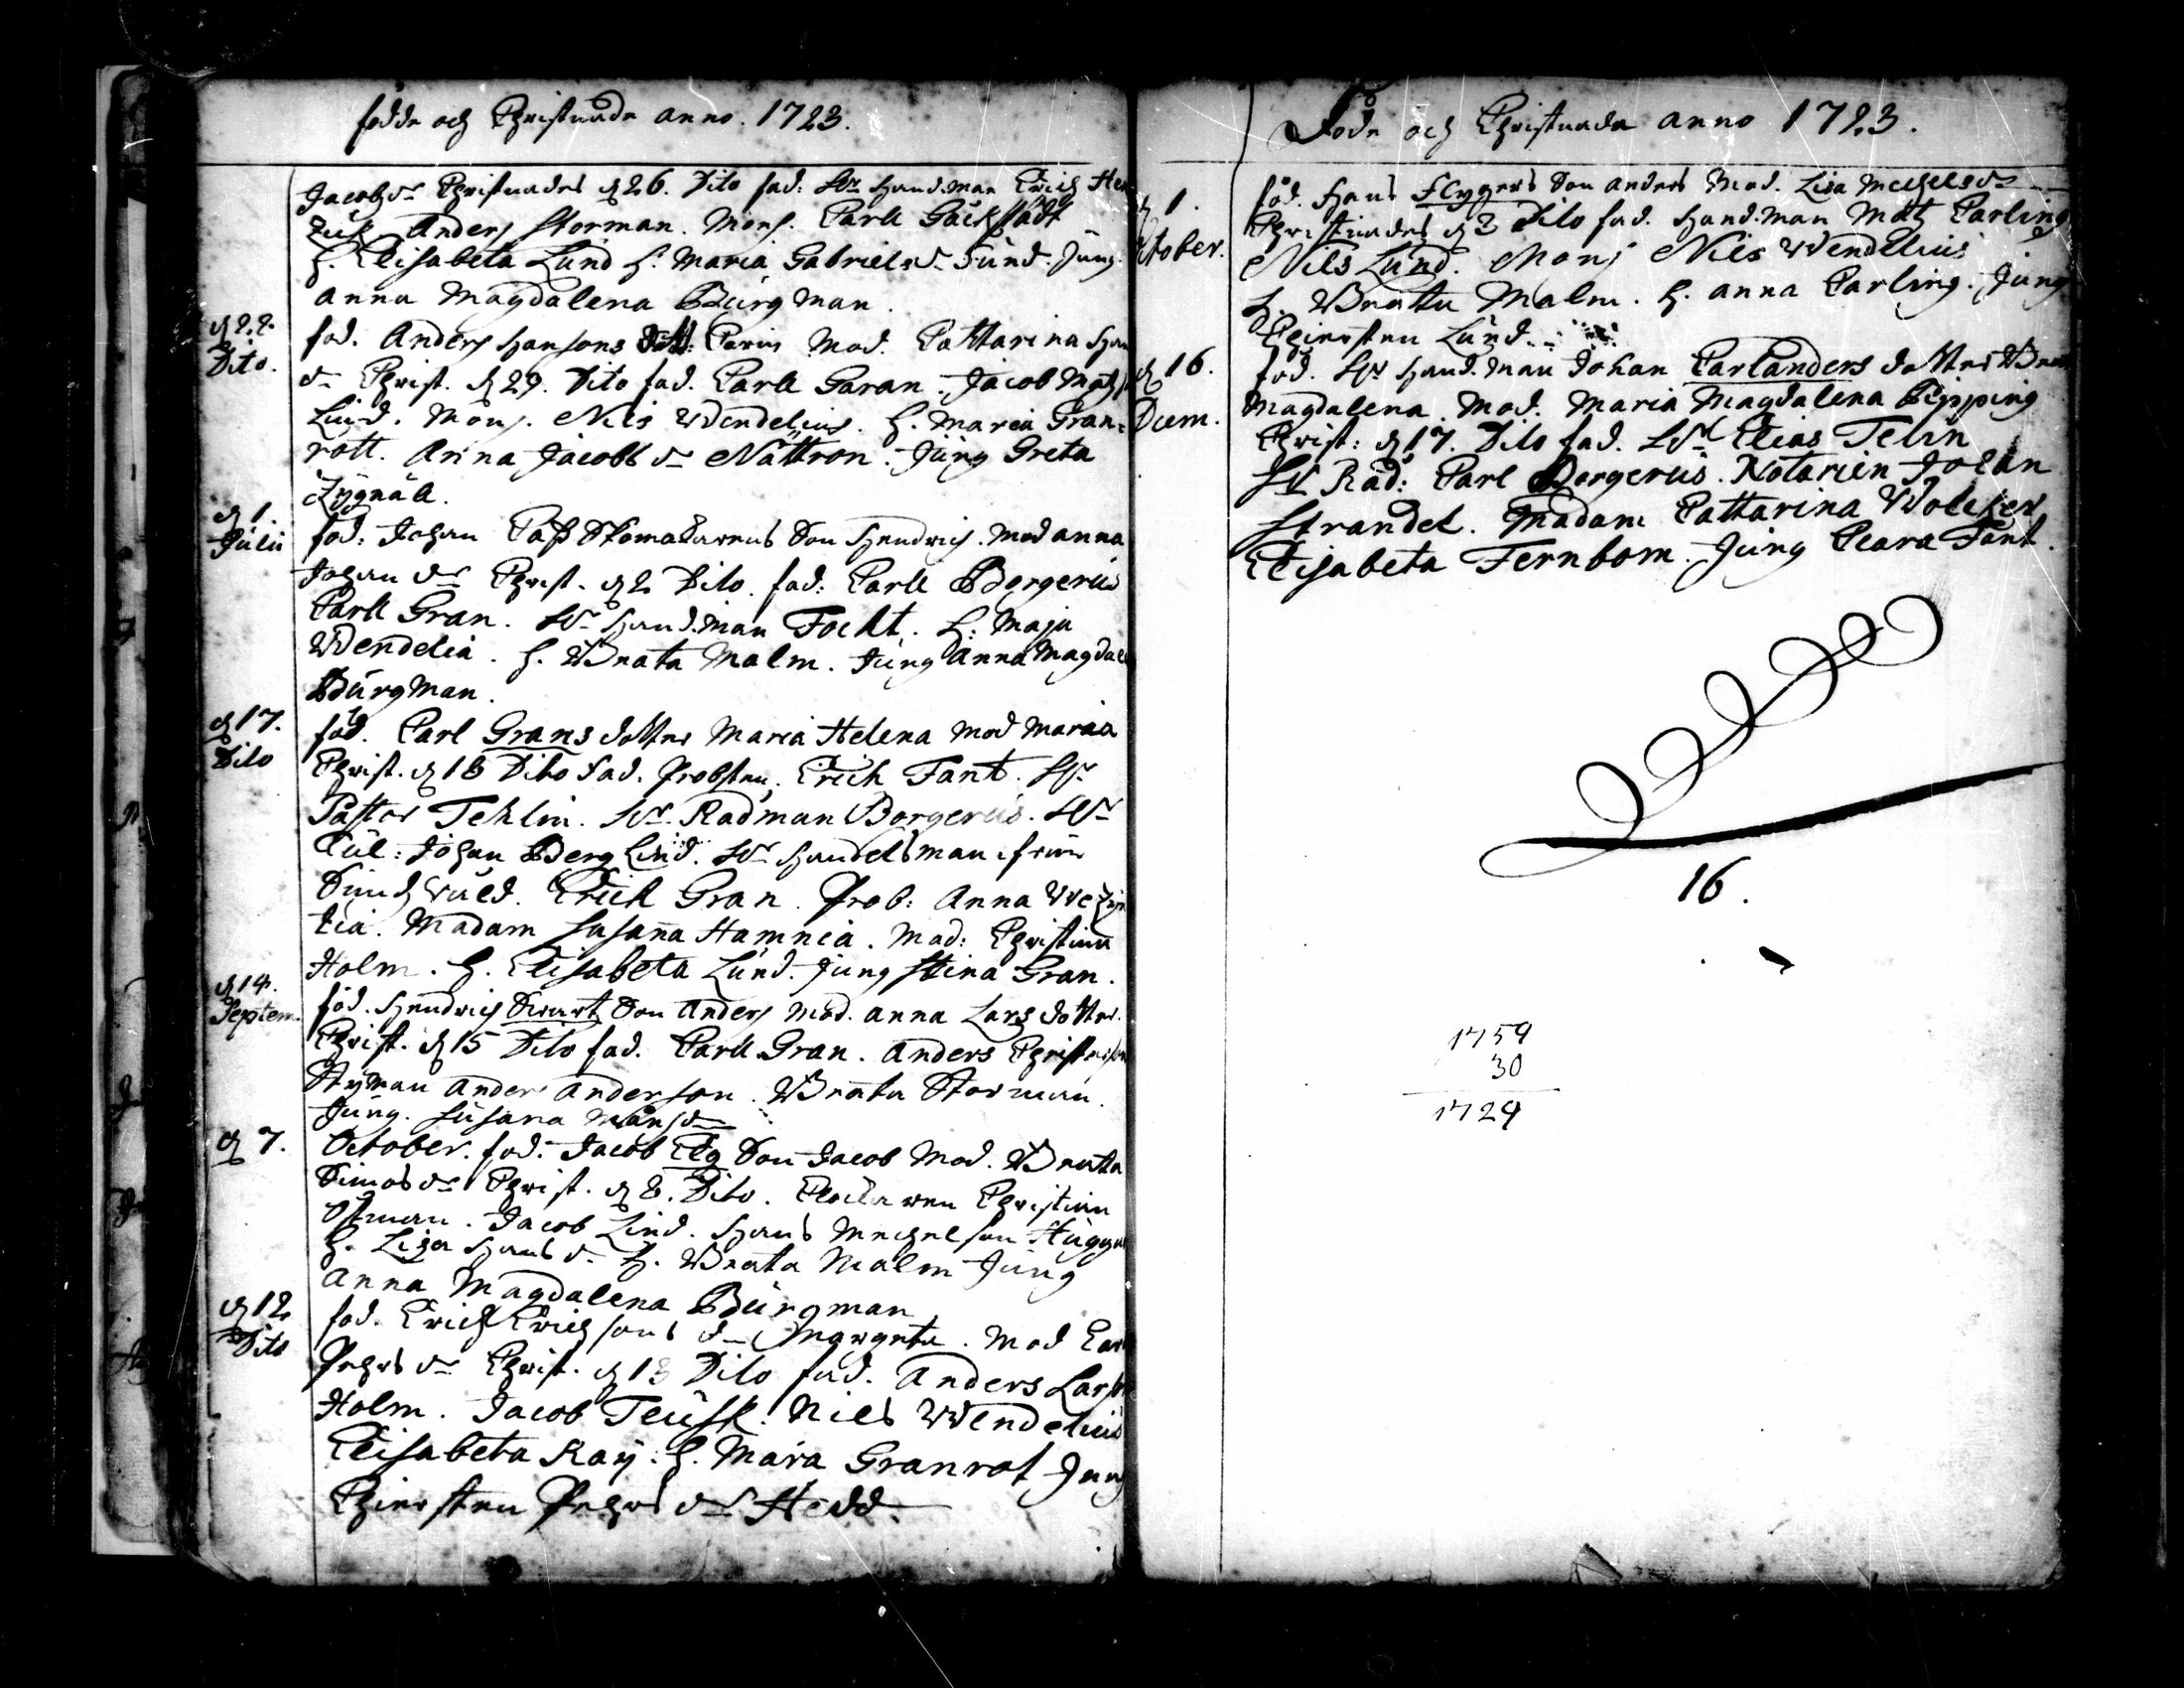 födde och Christnade anno. 1723.
Jacobsdr Christnades d 26. Dito fad: Hr Handman Erich
Anders Storman. Mons. Carll
H. Elisabeta Lund H. Maria Gabrielsdr Sund. Jung.
anna Magdalena Bürgman.
d 22.
Dito.
föd. Anders Hansons dott: Carin Mod. Cattarina
dr Christ. d 29. Dito fad. Carll Garan. Jacob
Lind. Mons. Nils Wendelius. H. Maria Gran-
rott. Anna Jacobs dr Nättron. Jung Greta
d 1.
Julii
föd: Johan Skomakarens Son Hendrich. mod anna
Johan dr Christ. d 2 Dito. fad: Carll Borgerus
Carll Gran. Hr Handman Fockt. H: Maja
Wendelia. H. Breata Malm. Jung Anna Magdale
Bürgman.
d 17.
Dito
föd. Carl Grans dotter Maria Helena mod Maria
Christ. d 18 Dito fad. Probsten, Erich Fant. Hr
Pastor Tehlin. Hr Radman Borgerus. Hr
Johan Berglind. Hr Handelsman ifrån
Sundsvald. Erich Gran. Prob: Anna
tia. Madam Susanna Hamnia. Mad: Christina
Holm. H. Elisabeta Lund. Jung Stina Gran.
d 14.
Septem.
föd. Hendrich Swart Son Anders Mod. anna Lars dotter.
Christ. d 15 Dito fad. Carll Gran. Anders Christerson
Styman Anders Anderson. Breata Storman.
Jung. Susana Månsdr
d 7.
October. föd: Jacob Elg Son Jacob Mod. Breata
Simosdr Christ. d 8. Dito. Klockaren Christian
Östman. Jacob Lind. Hans Mechelson
H. Lisa Hansdr H. Breata Malm Jung
Anna Magdalena Bürgman
d 12
Dito
föd. Erich Erichsons dr Margreta. Mod
Pehrsdr Christ. d 13 Dito fad. Anders Larson
Holm. Jacob Teüsk. Niels Wendelius
Elisabeta Ray. H. Maria Granrot Jung
Chiersten Pehrsdr Hedd.
Född och Christnada anno 1723.
d 1.
October.
föd. Hans Flygers Son anders Mod. Lisa Mechelsdr
Christnades d 2 Dito fad. Handman Mats Carling
Nils Lund. Mons Nils Wendelius
H. Breata Malm. H. anna Carling. Jung
Chiersten Lund.
d 16.
Decem.
föd. Hr Handman Johan Carlanders dotter Breata
Magdalena. Mod. Maria Magdalena
Christ: d 17. Dito fad. Hr Elias Telin
Hr Råd: Carl Borgerus. Notarien Johan
Strandel. Madam Cattarina Wolcker
Elisabeta Fernbom. Jung Clara Fant.
16.
1759
30
1729